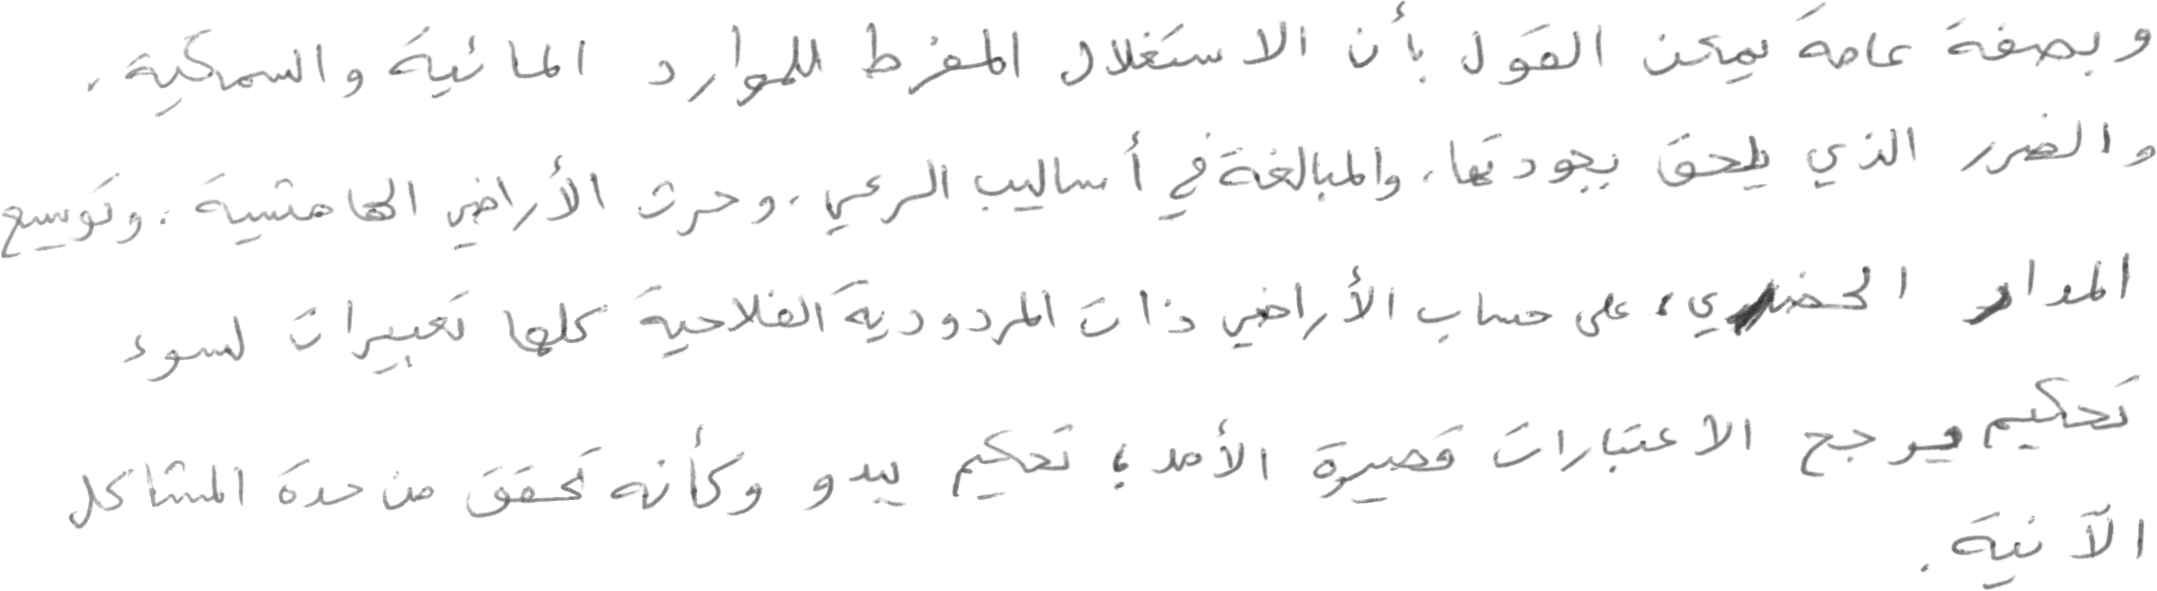 وبصفة عامة يمكن القول بأن الاستغلال المفرط للموارد المائية والسمكية،
والضرر الذي يلحق بجودتها، والمبالغة في أساليب الرعي، وحرث الأراضي الهامشية، وتوسيع
المدار الحضري، على حساب الأراضي ذات المردودية الفلاحية كلها تعبيرات لسوء
تحكيم يرجح الاعتبارات قصيرة الأمد؛ تحكيم يبدو وكأنه تحقق من حدة المشاكل
الآنية.